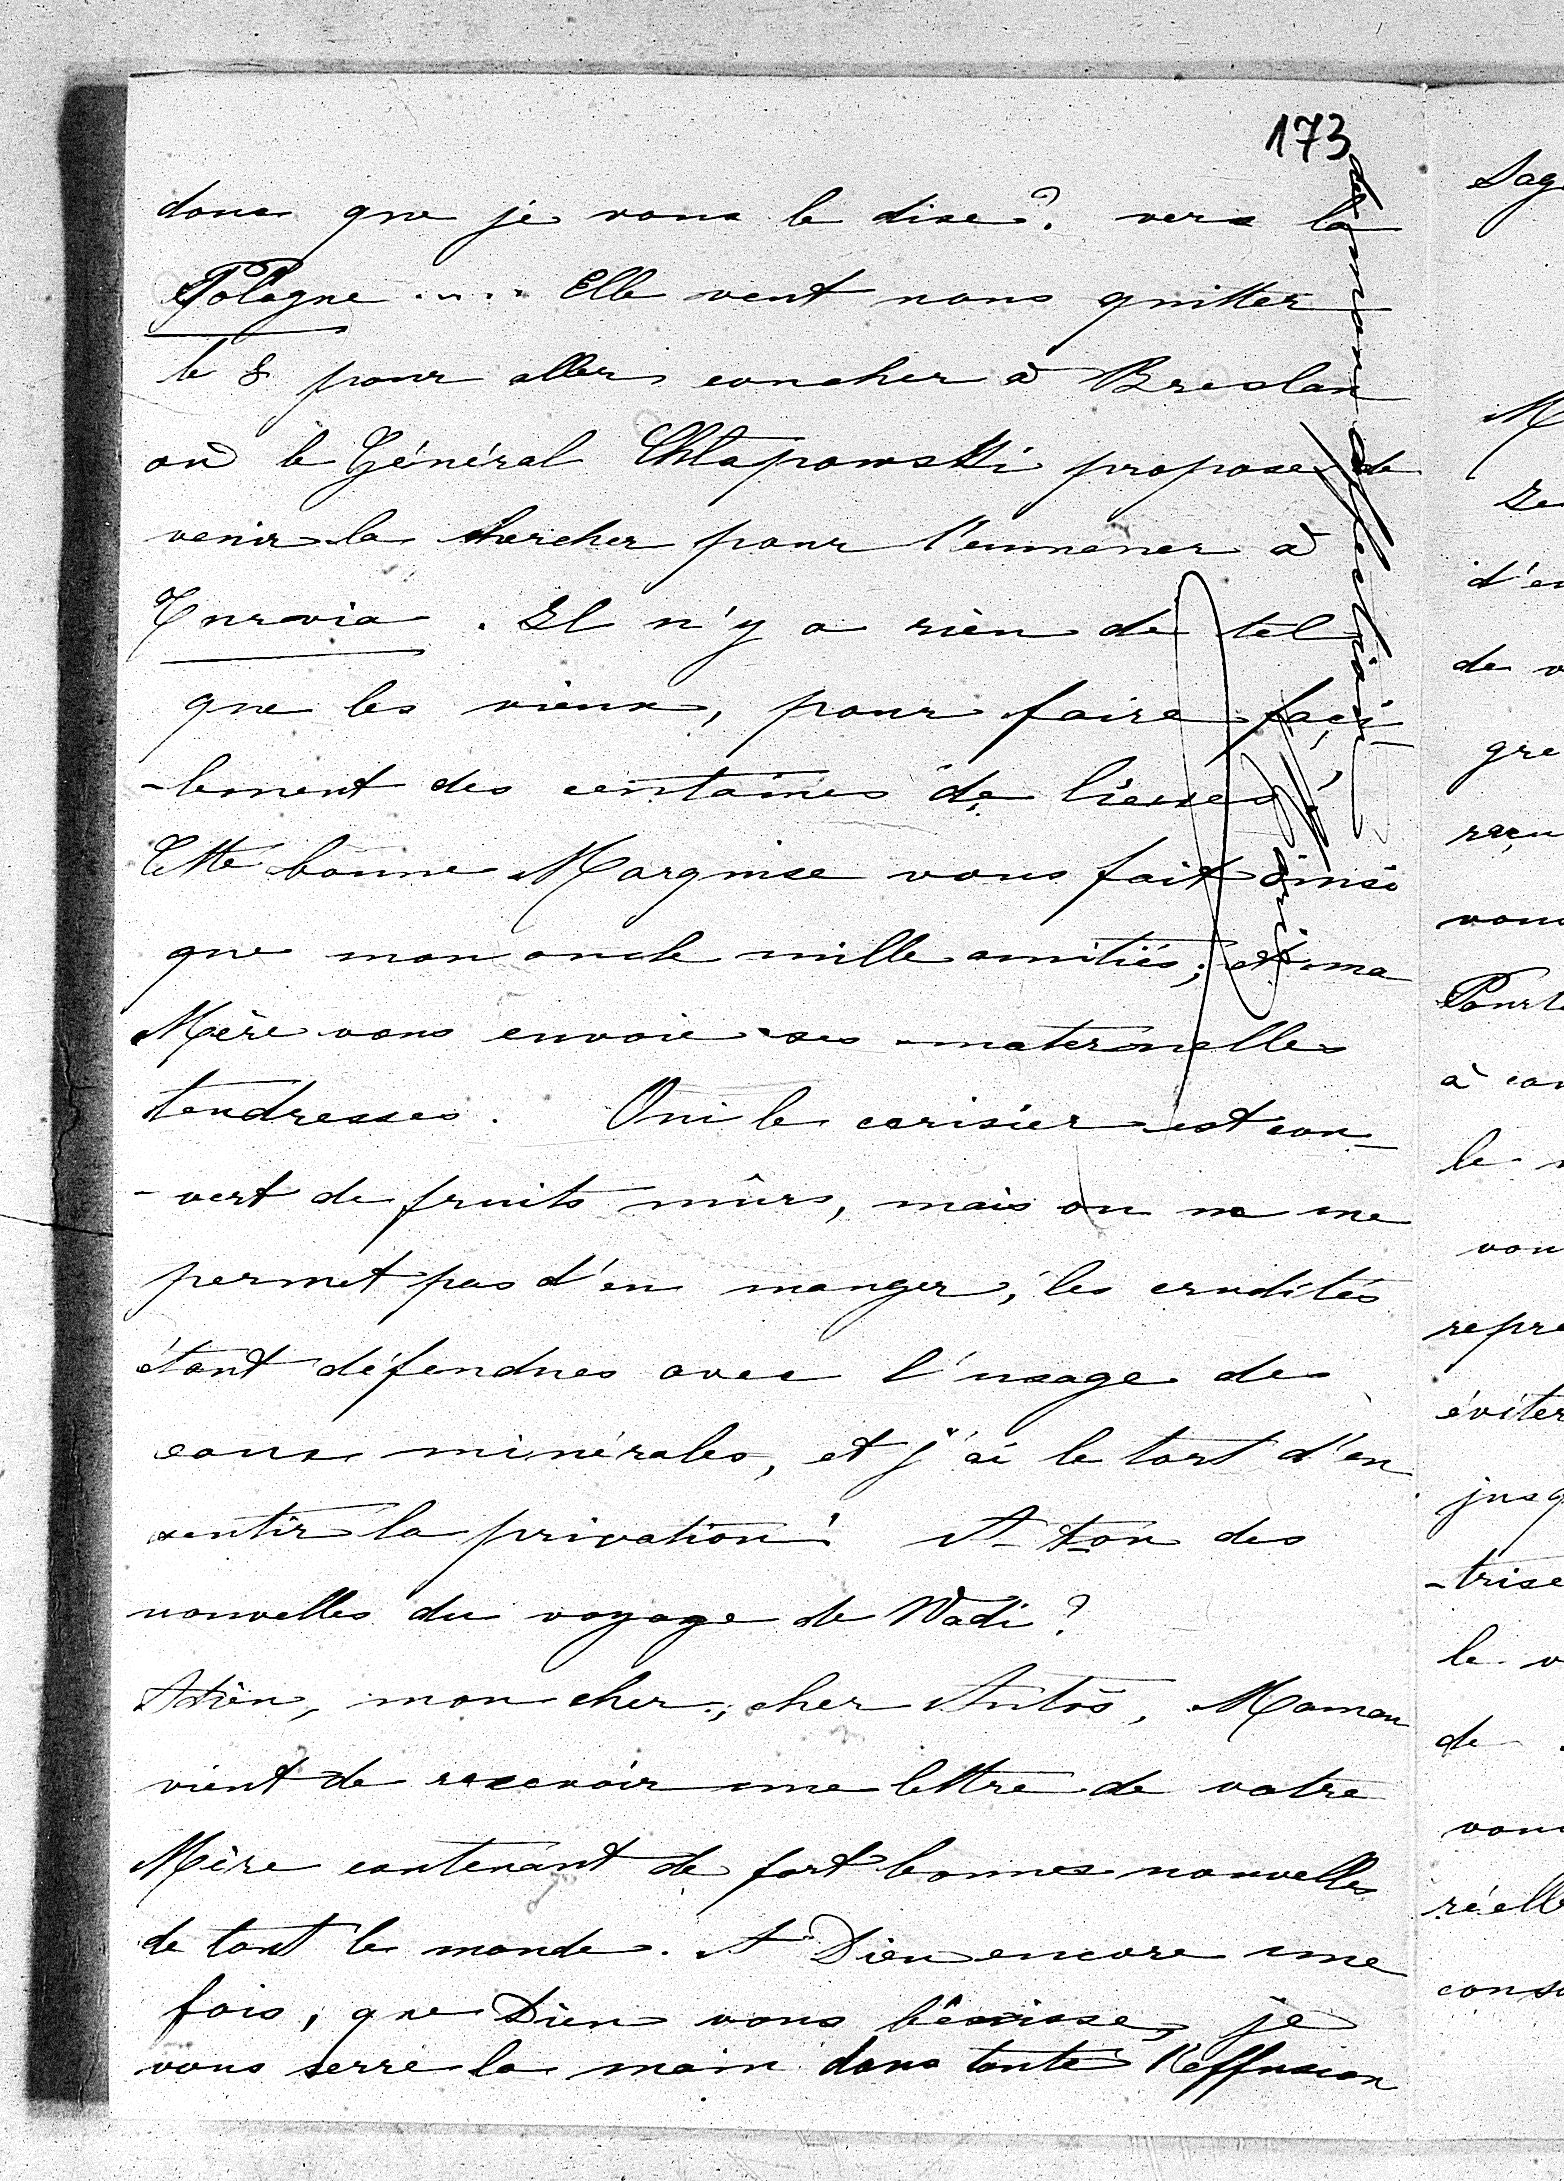 173
donc que je vous le dise? vers la
Pologne ..... Elle veut nous quitter
le 8 pour aller coucher à Breslau
où le Général Chlapowski propose de
venir la chercher pour l'emmener à
Turwia. Il n'y a rien de tel
que les vieux, pour faire faci-
-lement des centaines de lieues!
Cette bonne Marquise vous fait ainsi
que mon oncle mille amitiés; et ma
Mère vous envoie ses maternelles
tendresses. Oui le cerisier est cou-
-vert de fruits mûrs, mais on ne me
permet pas d'en manger, les crudités
étant défendues avec l'usage des
eaux minérales, et j'ai le tort d'en
sentir la privation! A-t-on des
nouvelles du voyage de Wadi?
Adieu, mon cher, cher Antoś, Maman
vient de recevoir une lettre de votre
Mère contenant de fort bonnes nouvelles
de tout le monde. A Dieu encore une
fois, que Dieu vous bénisse, je
vous serre la main dans toute l'effusion
de mon affection
Sag
M
Je
d'en
de v
gre
reçu
vous
Pourt
à con
le
vou
repre
éviter
jusq
-trise
le v
de
vou
réell
conso